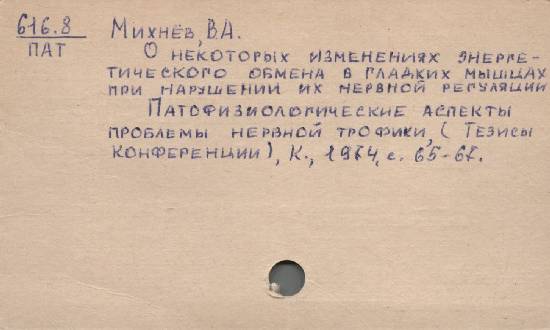 616.8
ПАТ
Михнёв, В.А.
О некоторых изменениях энерге-
тического обмена в гладких мышцах
при нарушении их нервной регуляции
Патофизиологические аспекты
проблемы нервной трофики, (Тезисы
конференции), К., 1974, с. 65-67.